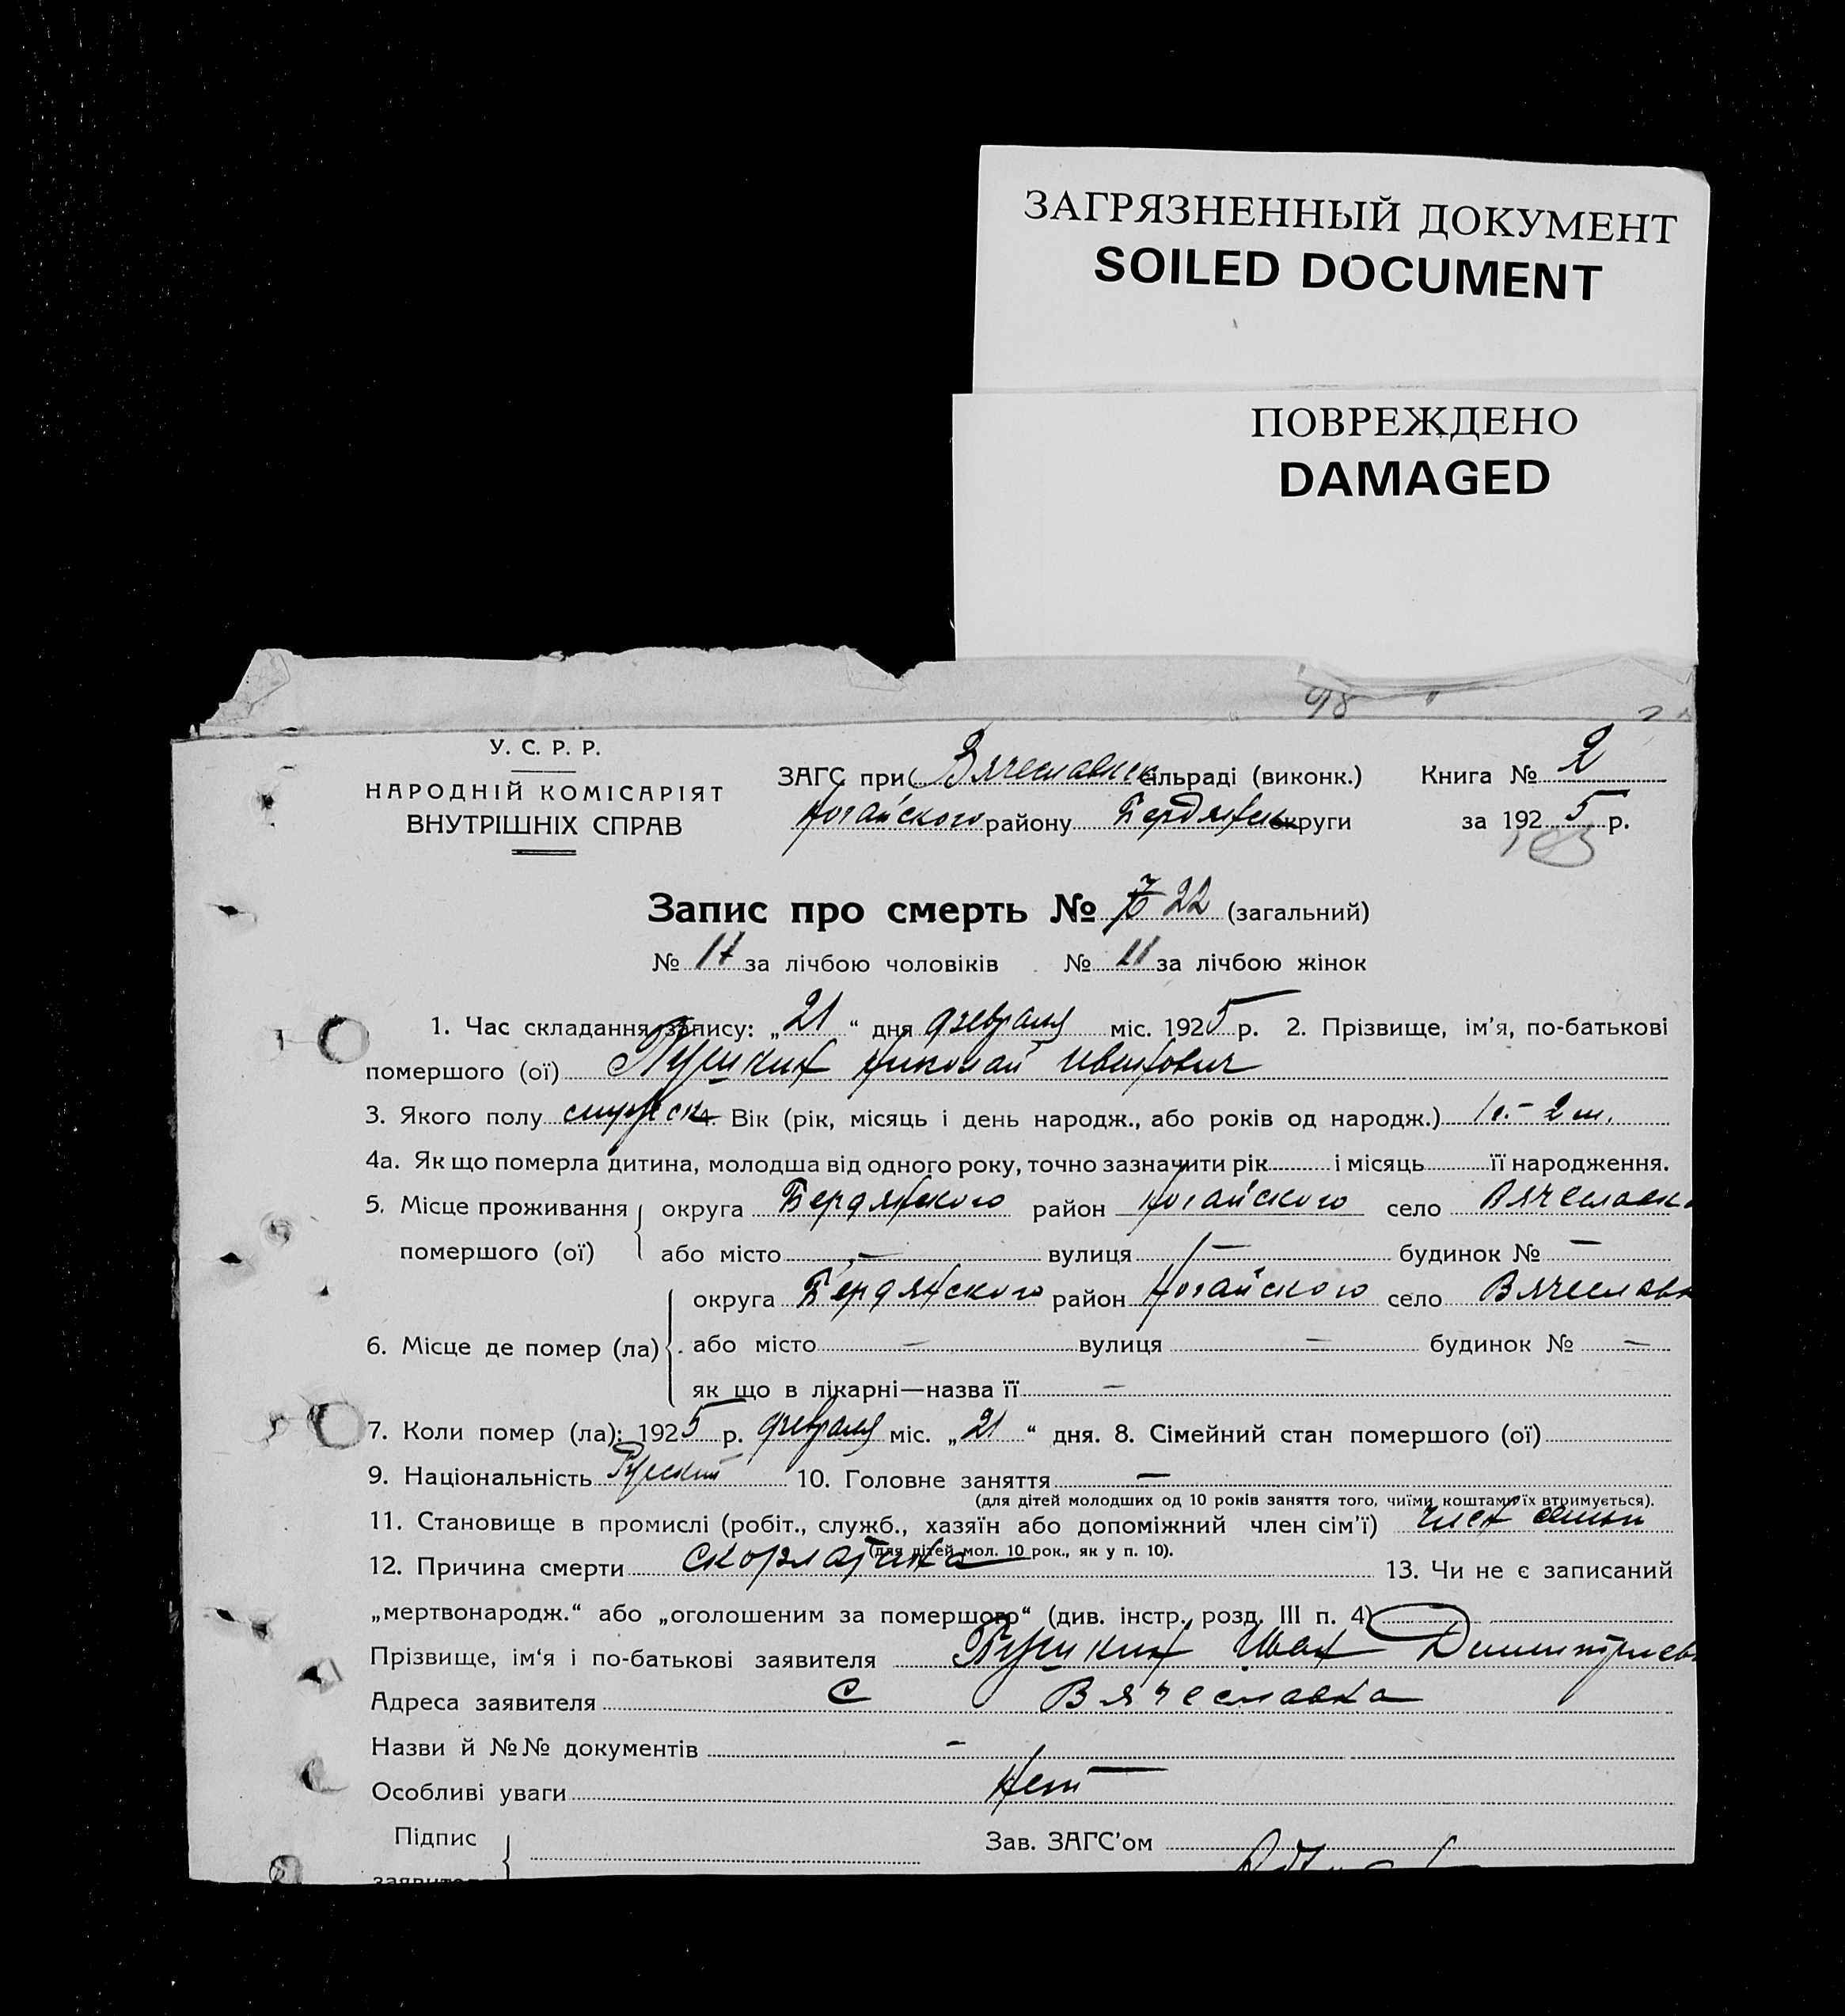 ЗАГРЯЗНЕННЫЙ ДОКУМЕНТ
SOILED DOCUMENT
ПОВРЕЖДЕНО
DAMAGED
98
У. С. Р. Р.
НАРОДНІЙ КОМІСАРІЯТ
ВНУТРІШНІХ СПРАВ
ЗАГС при Вячеславск сільраді (виконк.) Книга № 2
Ногайского району Бердянск округи за 1925 р.
Запис про смерть № 22 (загальний)
№ 17 за лічбою чоловіків № 11 за лічбою жінок
1. Час складання запису: „21“ дня февраля міс. 1925 р. 2. Прізвище, ім’я, по-батькові
помершого (ої) Пушкин Николай Иванович
3. Якого полу мужск 4. Вік (рік, місяць і день народж., або років од народж.) 1 г. – 2 м.
4а. Як що померла дитина, молодша від одного року, точно зазначити рік і місяць її народження.
5. Місце проживання округа Бердянского район Ногайского село Вячеславка
помершого (ої) або місто – вулиця – будинок № –
округа Бердянского район Ногайского село Вячеславк
6. Місце де помер (ла) або місто – вулиця – будинок № –
як що в лікарні—назва її –
7. Коли помер (ла): 1925 р. февраля міс. „21“ дня. 8. Сімейний стан помершого (ої)
9. Національність Русский 10. Головне заняття –
(для дітей молодших од 10 років заняття того, чиїми коштами їх втримується).
11. Становище в промислі (робіт., служб., хазяїн або допоміжний член сім’ї) член семьи
(для дітей мол. 10 рок., як у п. 10).
12. Причина смерти скорлатина 13. Чи не є записаний
„мертвонародж.“ або „оголошеним за помершого“ (див. інстр., розд. III п. 4)
Прізвище, ім‘я і по-батькові заявителя Пушкин Иван Димитриев
Адреса заявителя С Вячеславка
Назви й №№ документів –
Особливі уваги Нет
Підпис Зав. ЗАГС’ом
заявителя